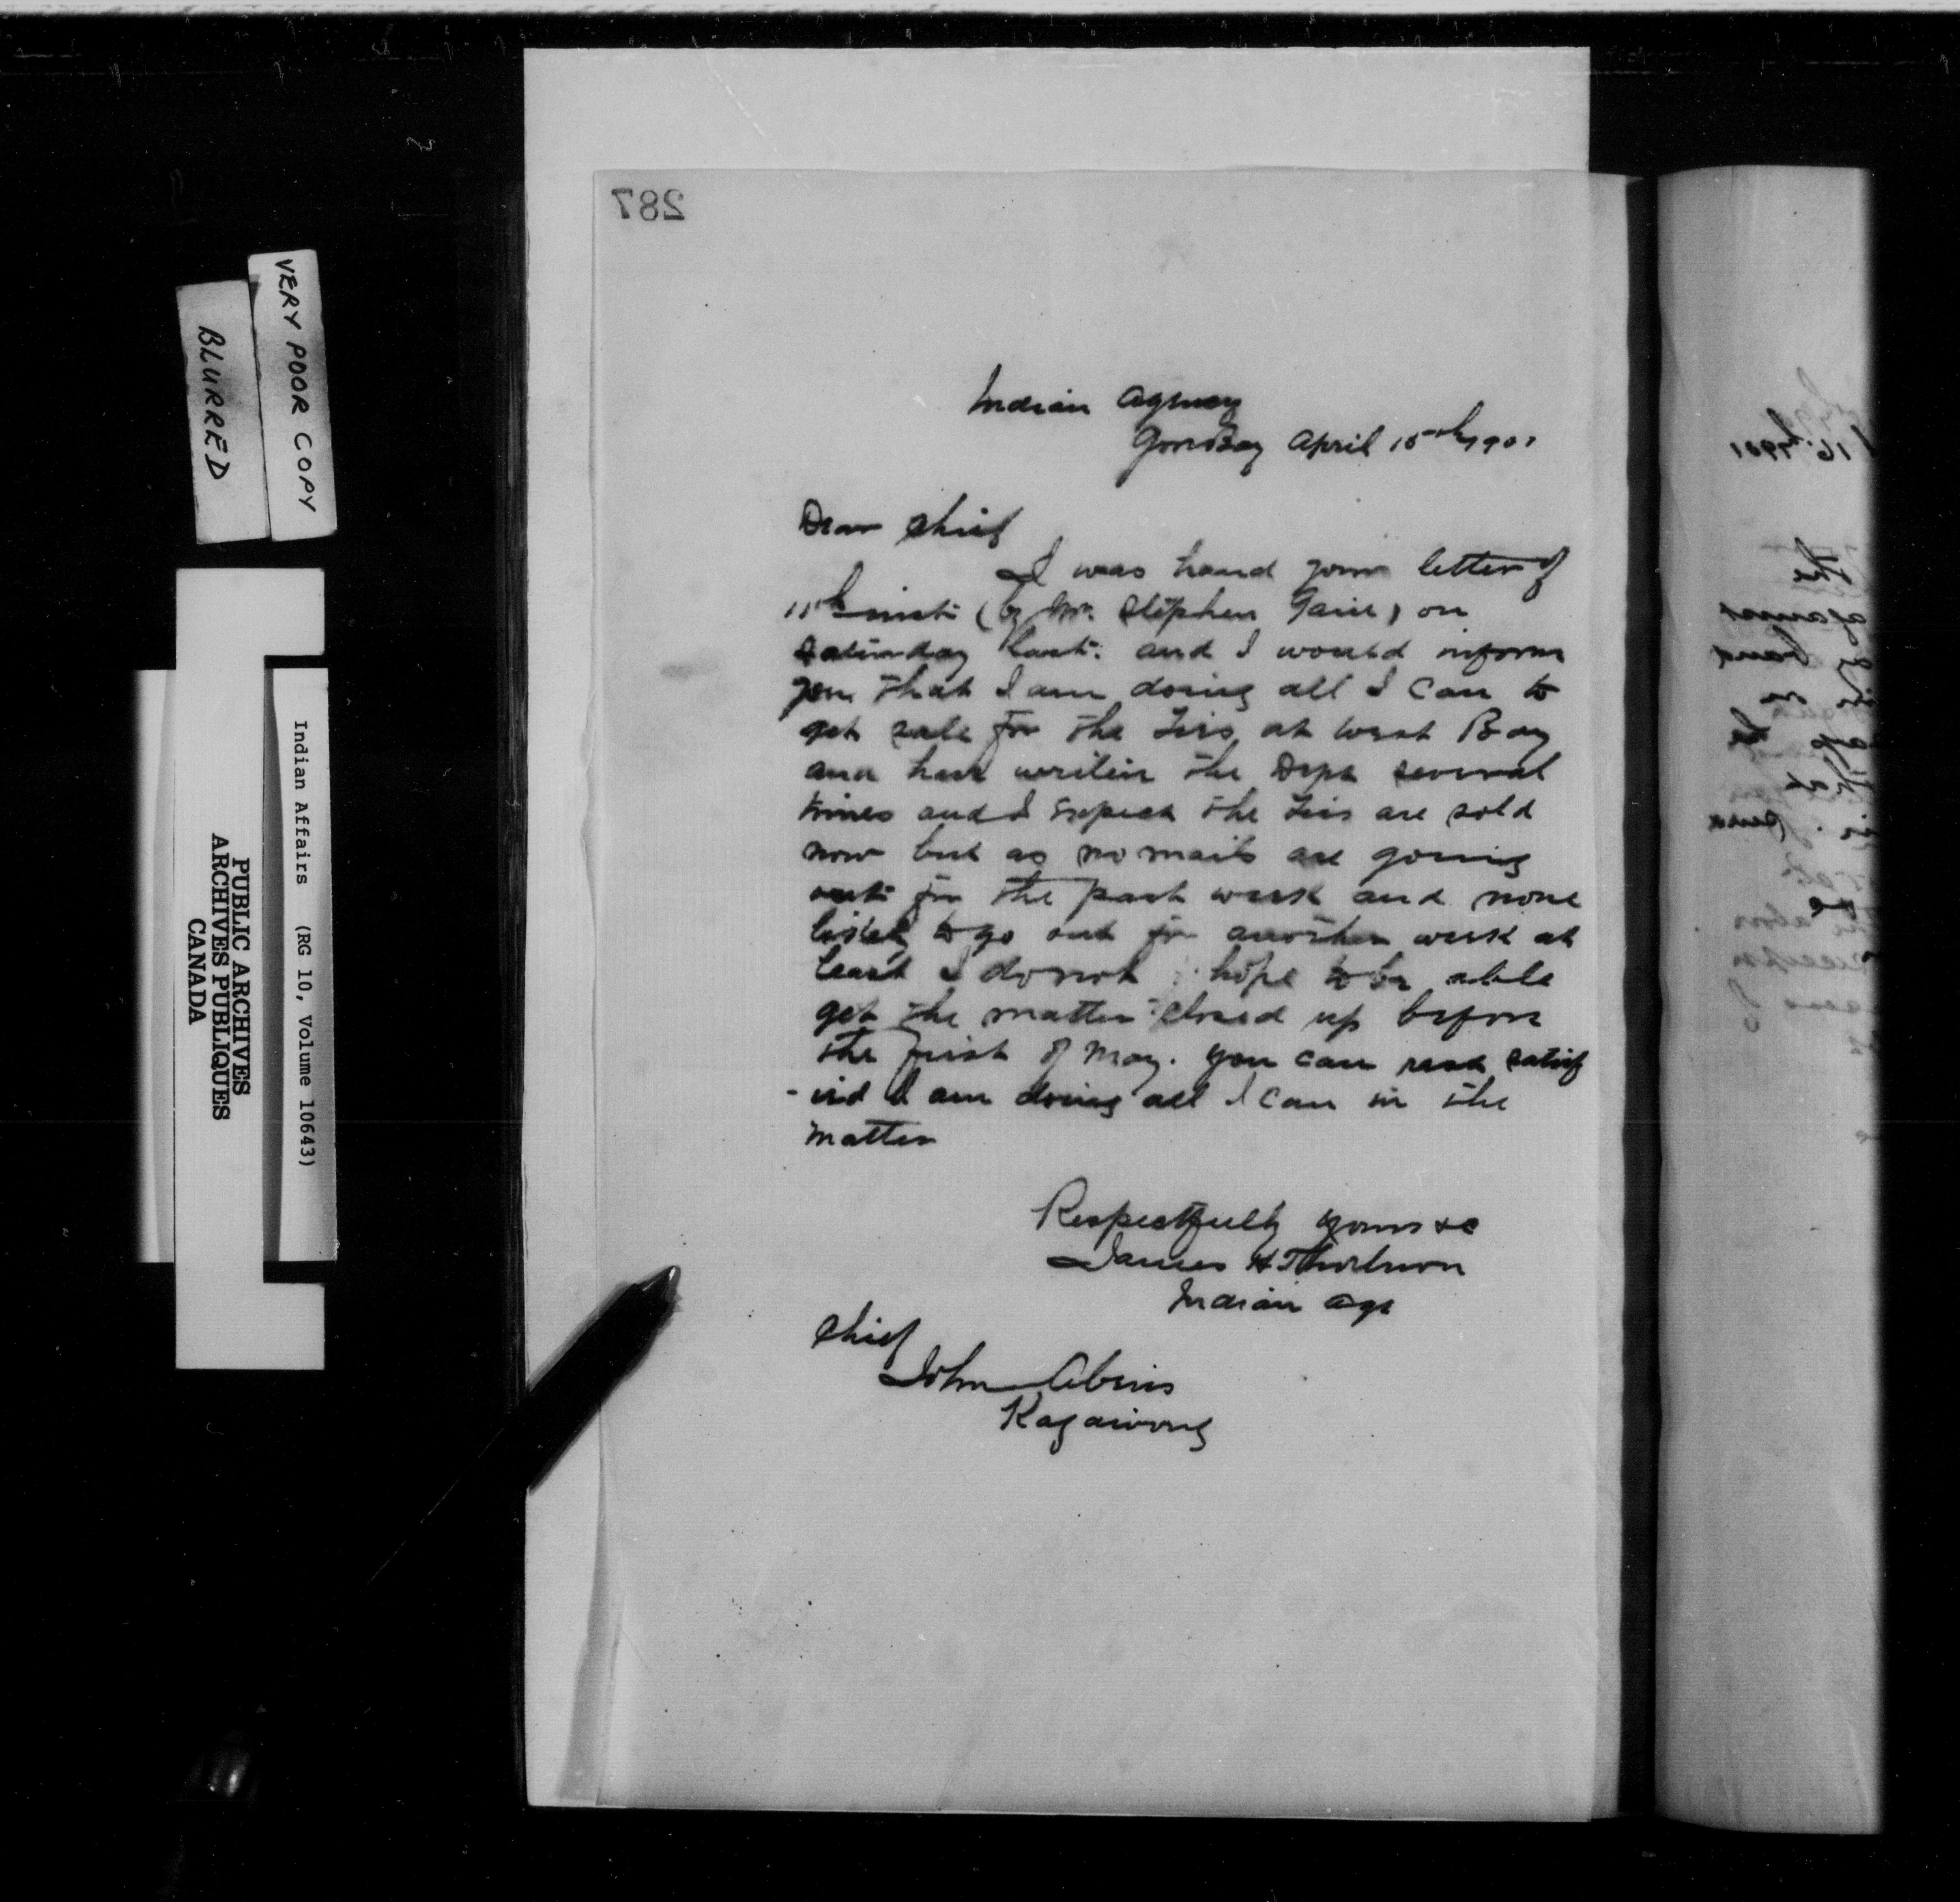 287
Indian Agency
Gore Bay April 15th 1901
Dear Chief
I was hand your letter of
11th inst (by Mr. Stephen ) on
Saturday last. and I would inform
you that I am doing all I can to
get sale for the Ties at West Bay
and have writein the Dept several
times and I expect the Ties are sold
now but as no mails are going
out for the past week and none
likely to go out for another week at
least I do not hope to be able
get the matter closed up before
the first of May. you can rest satisf
-ied I am doing all I can in the
matter
Respectfully yours &c
James H Thorburn
Indian Agt
Chief
John Abins
Kagawong
VERY POOR COPY
BLURRED
Indian Affairs (RG 10, Volume 10643)
PUBLIC ARCHIVES
ARCHIVES PUBLIQUES
CANADA
16th 1901
the
against
band